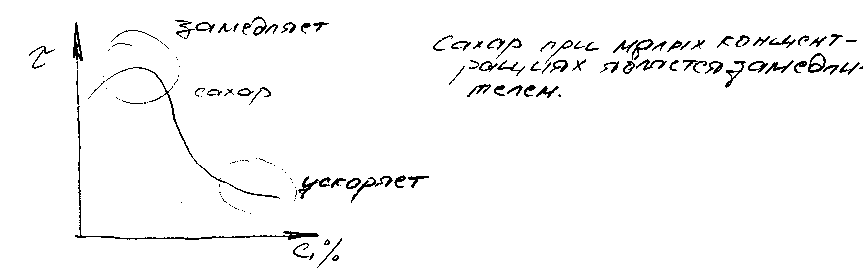 замедляет
τ
сахар
ускоряет
С,%
Сахар при малых концент-
рациях явлется замедли-
телем.